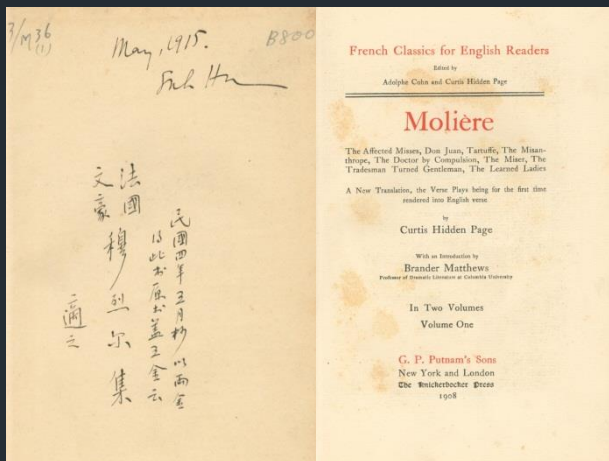 3/M36
(1)
May, 1915.
Suh Hu
B800
民國四年五月杪以兩金
得此書原書蓋五金云
法國
文豪
穆烈尔集
適之
French Classics for English Readers
Edited by
Adolphe Cohn and Curtis Hidden Page
Molière
The Affected Misses, Don Juan, Tartuffe, The Misan-
thrope, The Doctor by Compulsion, The Miser, The
Tradesman Turned Gentleman, The Learned Ladies
A New Translation, the Verse Plays being for the first time
rendered into English verse
by
Curtis Hidden Page
With an Introduction by
Brander Matthews
Professor of Dramatic Literature at Columbia University
In Two Volumes
Volume One
G. P. Putnam's Sons
New York and London
The Knickerbocker Press
1908